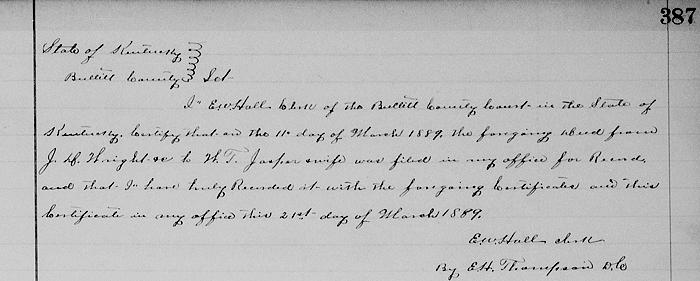 387
State of Kentucky
Bullitt County Sct
I E.W. Hall Clerk of the Bullitt County Court in the State of
Kentucky, Certify that on the 11th day of March 1889, the foregoing Deed from
J. W. Wright &c to W. T. Jasper & wife was filed in my office for Record,
and that I have truly Recorded it with the foregoing Certificates and this
Certificate in my office this 21st day of March 1889.
E.W. Hall Clerk
By E.H. Thompson D.C